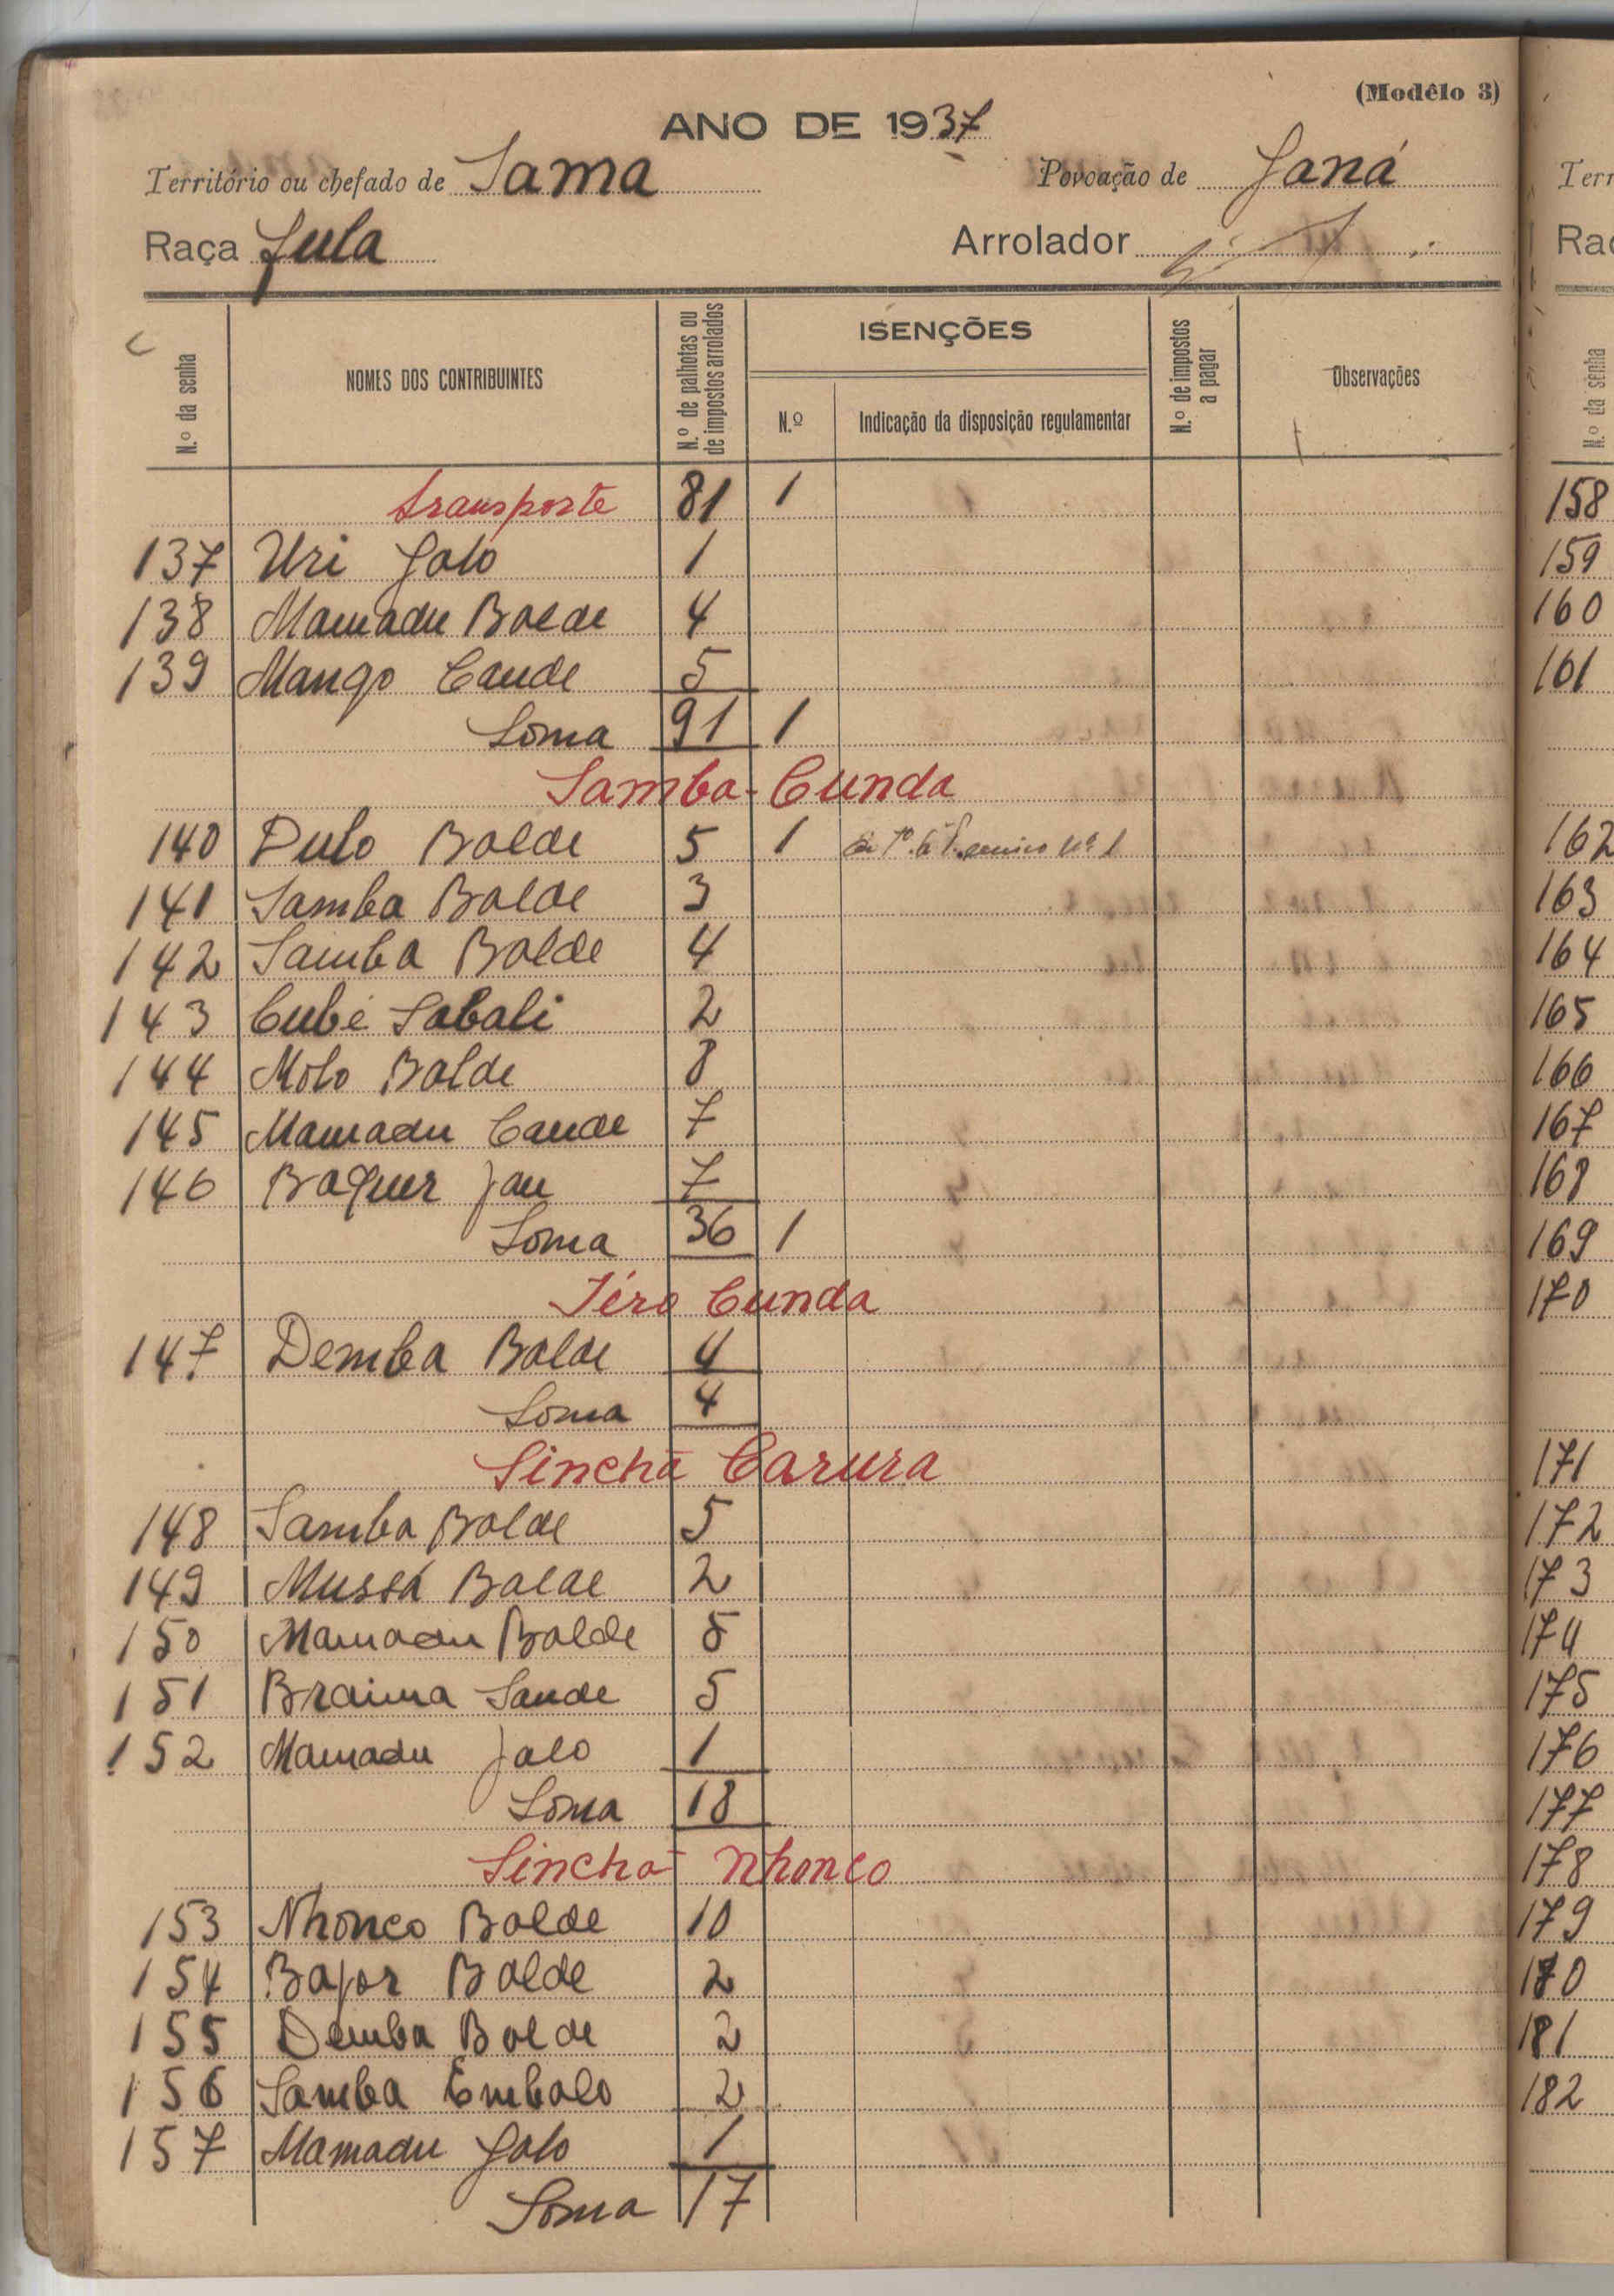 (Modêlo 3)
ANO DE 1937
Território ou chefado de Sama Povoação de Janá
Raça fula Arrolador
N.º da senha NOMES DOS CONTRIBUINTES N.º de palhotas ou de impostos arrolados ISENÇÕES N.º Indicação da disposição regulamentar N.º de impostos a pagar Observações
transporte 81 1
137 Uri Jalo 1
138 Mamadu Balde 4
139 Mango Cande 5
Soma 91 1
Samba-Cunda
140 Dulo Balde 5 1 nº 1
141 Samba Balde 3
142 Samba Balde 4
143 Cubé Sabali 2
144 Molo Balde 8
145 Mamadu Cande 7
146 Baquer Jau 7
Soma 36 1
Téro Cunda
147 Demba Balde 4
Soma 4
Sinchã Carura
148 Samba Balde 5
149 Mussá Balde 2
150 Mamadu Balde 5
151 Braima Sande 5
152 Mamadu Jalo 1
Soma 18
Sinchã Nhonco
153 Nhonco Balde 10
154 Bajor Balde 2
155 Demba Balde 2
156 Samba Embalo 2
157 Mamadu Jalo 1
Soma 17
Terr
Raç
N.º da senha
158
159
160
161
162
163
164
165
166
167
168
169
170
171
172
173
174
175
176
177
178
179
180
181
182